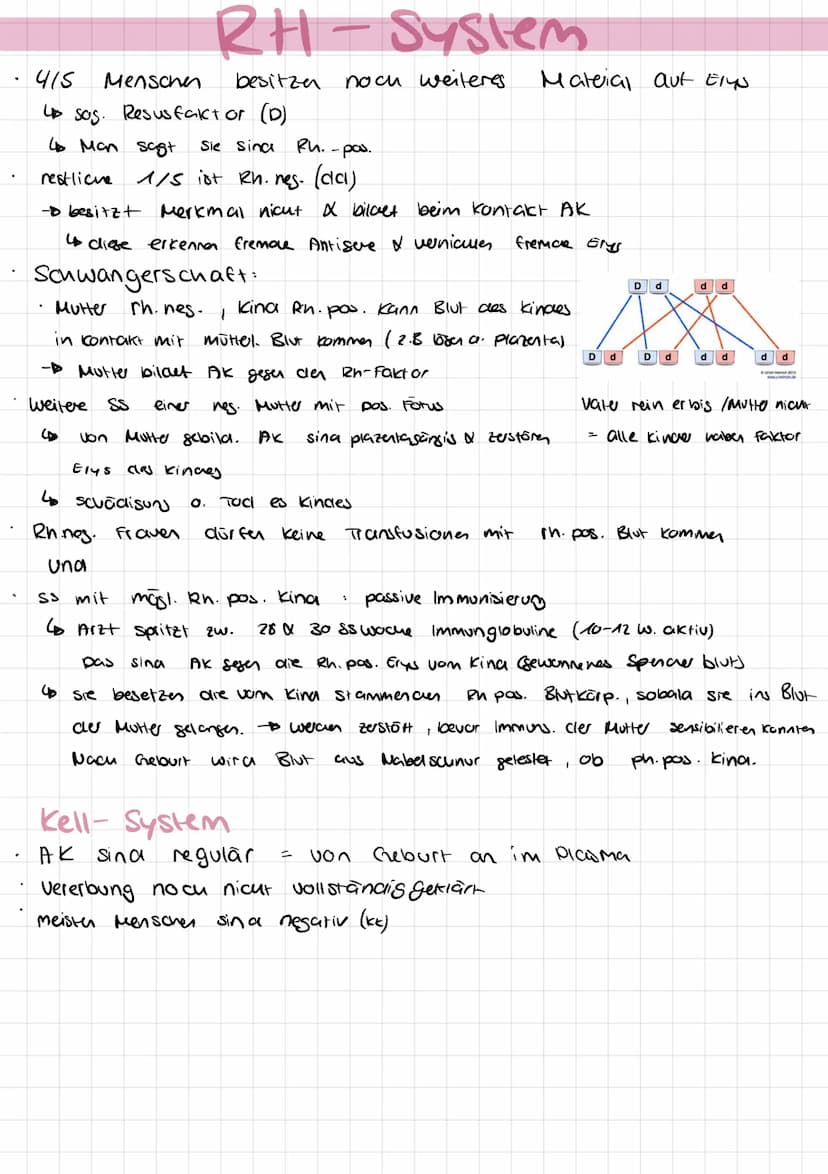 RH - System
· 4/5 Menschen besitzen noch weiteres Mateial auf Erys
↳ sog. Resusfaktor (D)
↳ Man sagt sie sind Rh. -pos.
· restliche 1/5 ist Rh. neg. (dd)
→ besitzt Merkmal nicht & bildet beim Kontakt AK
↳ diese erkennen fremde Antigene & vernichten fremde Erys
· Schwangerschaft:
· Mutter rh. neg. , Kind Rh. pos. Kann Blut des Kindes
in Kontakt mit müttel. Blut kommen ( z.B lösen d. Plazenta)
→ Mutter bildet AK gegen den Rh-Faktor
D d d d
D d D d d d d d
· weitere SS einer neg. Mutter mit pos. Fötus
↳ von Mutter gebild. AK sind plazentagängig & zerstören
Erys des Kindes
↳ Schädigung o. Tod es Kindes
Vater rein erbig /Mutter nicht
= alle Kinder haben Faktor
· Rh.neg. Frauen dürfen keine Transfusionen mit rh. pos. Blut kommen
und
· SS mit mögl. Rh. pos. Kind : passive Immunisierung
↳ Arzt spritzt zw. 28 & 30 SSwoche Immunglobuline (10-12 W. aktiv)
Das sind AK gegen die Rh. pos. Erys vom Kind (gewonnenes Spender blut)
↳ sie besetzen die vom Kind stammenden Rh pos. Blutkörp., sobald sie ins Blut
der Mutter gelangen. → werden zerstört , bevor Immuns. der Mutter sensibilieren konnten
Nach Geburt wird Blut aus Nabelschnur getestet , ob rh. pos. Kind.
Kell- System
· AK sind regulär = von Geburt an im Plasma
· Vererbung noch nicht vollständig geklärt
· meisten Menschen sind negativ (kk)